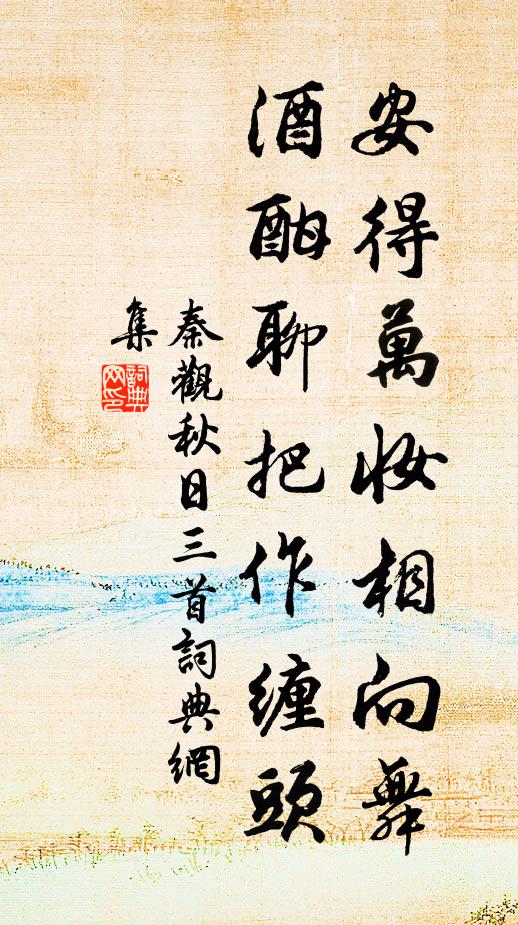 安得萬妝相向舞
酒酣聊把作纏頭
秦觀秋日三首詞典網
集
詞典
网印